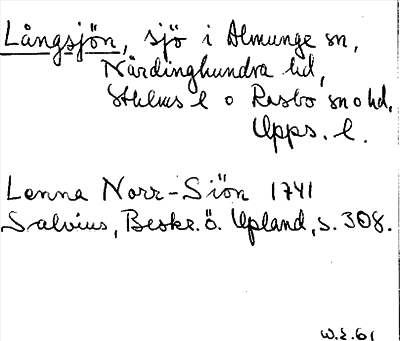 Långsjön, sjö i Almunge sn,
Närdinghundra hd,
Sthlms l o Rasbo sn o hd,
Upps. l.
Lenna Norr-Siön 1741
Salvius, Beskr. ö. Upland, s. 308.
W.E. 61